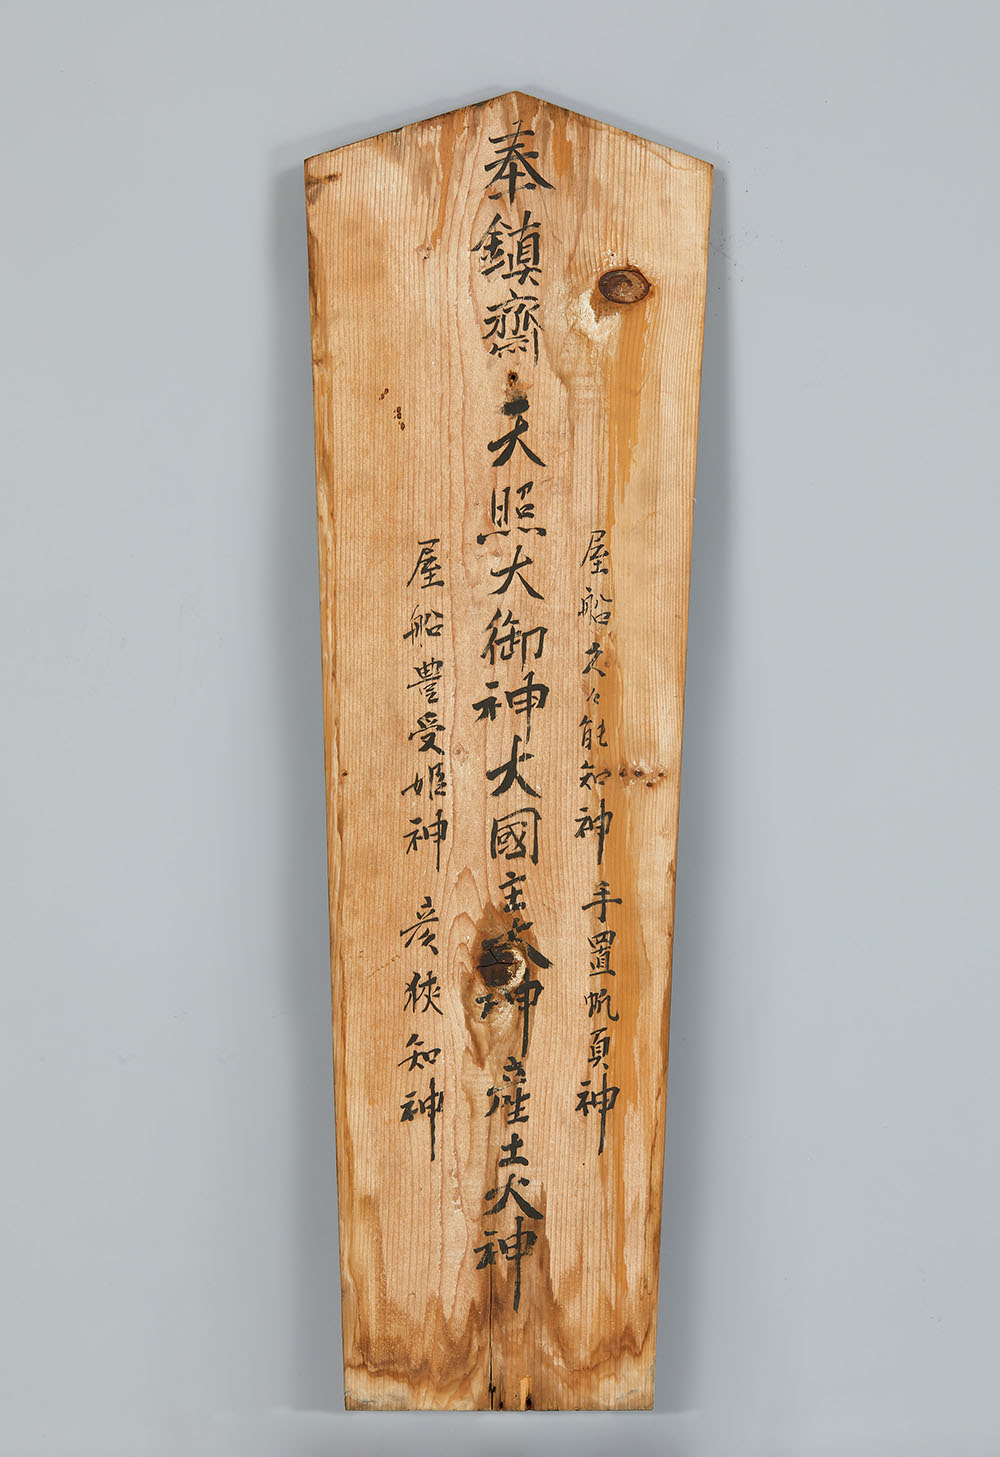 奉鎮齋 天照大御神大國主大神産土大神
屋船久々能知神 手置帆負神
屋船豊受姫神 彦狹知神